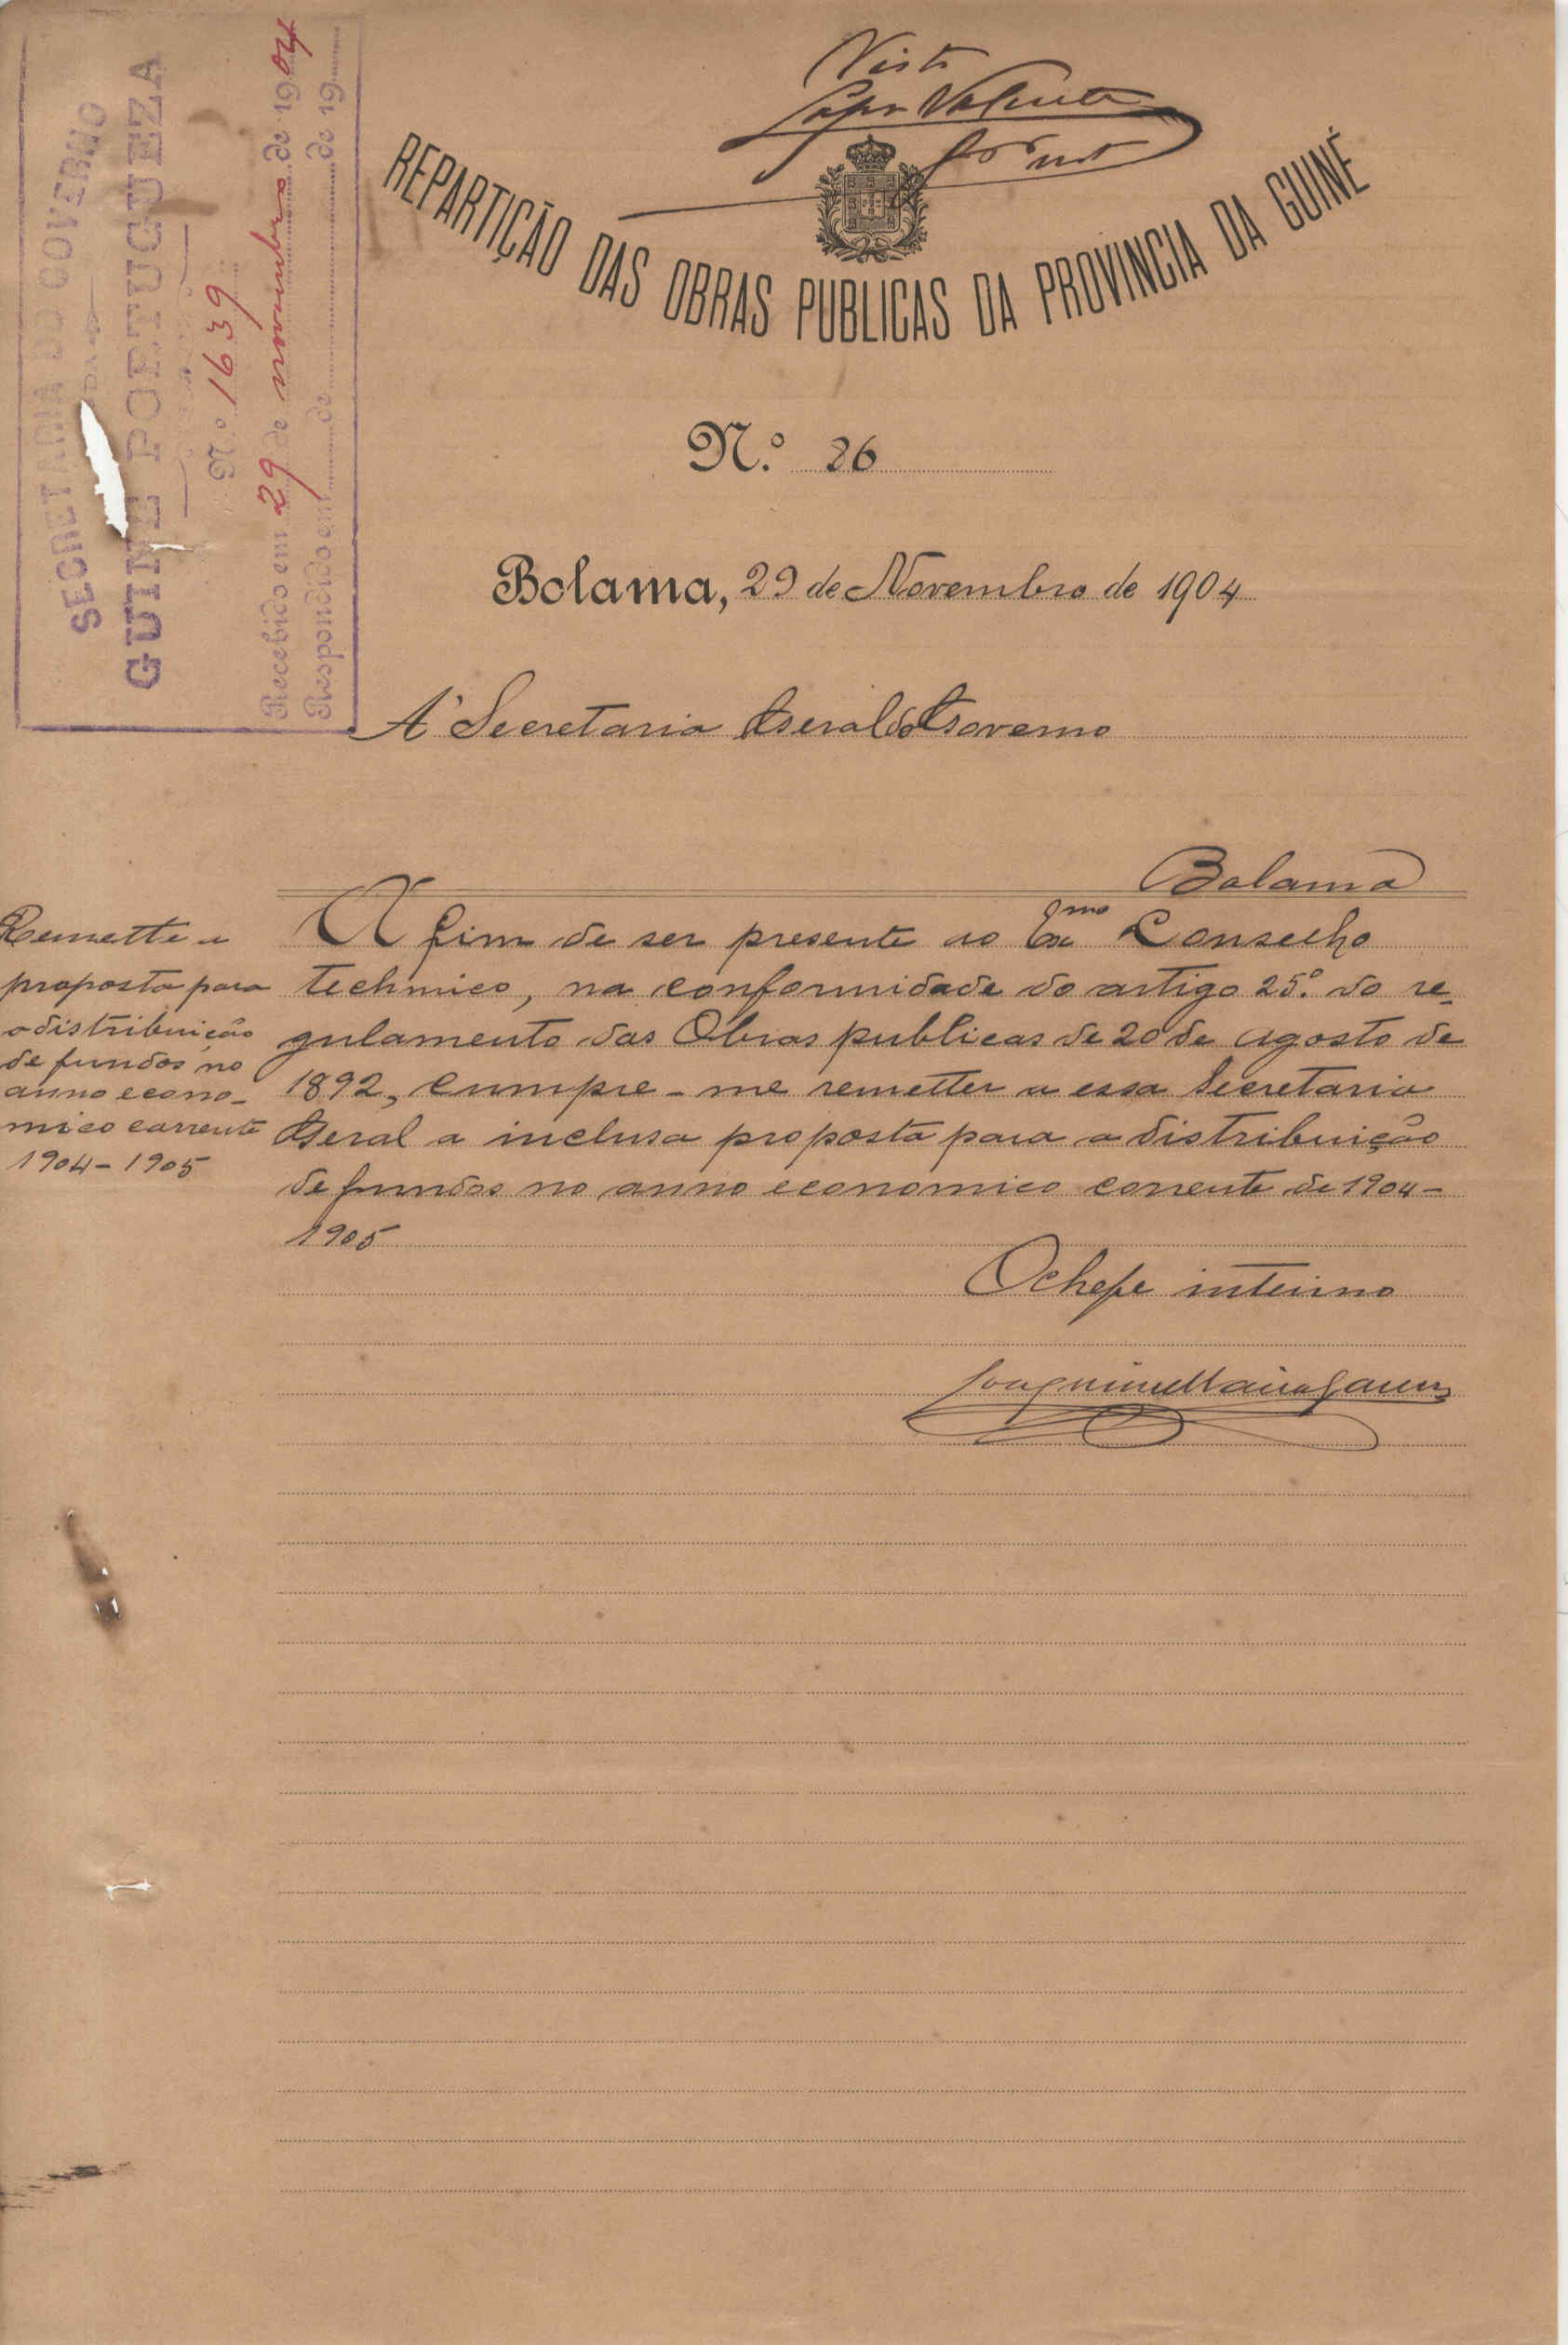 Visto
REPARTIÇÃO DAS OBRAS PUBLICAS DA PROVINCIA DA GUINÉ
SECRETARIA DO GOVERNO
GUINÉ PORTUGUEZA
N.º 1639
Recebido em 29 de novembro de 1904
Respondido em de de 19
N.º 26
Bolama, 29 de Novembro de 1904
A' Secretaria Geral do Governo
Bolama
Remette a
proposta para
a distribuição
de fundos no
anno econo-
mico corrente
1904-1905
A fim de ser presente ao Exmo Conselho
technico, na conformidade do artigo 25.º do re-
gulamento das Obras publicas de 20 de Agosto de
1892, cumpre-me remetter a essa Secretaria
Geral a inclusa proposta para a distribuição
de fundos no anno economico corrente de 1904-
1905
O chefe interino
Joaquim Maria